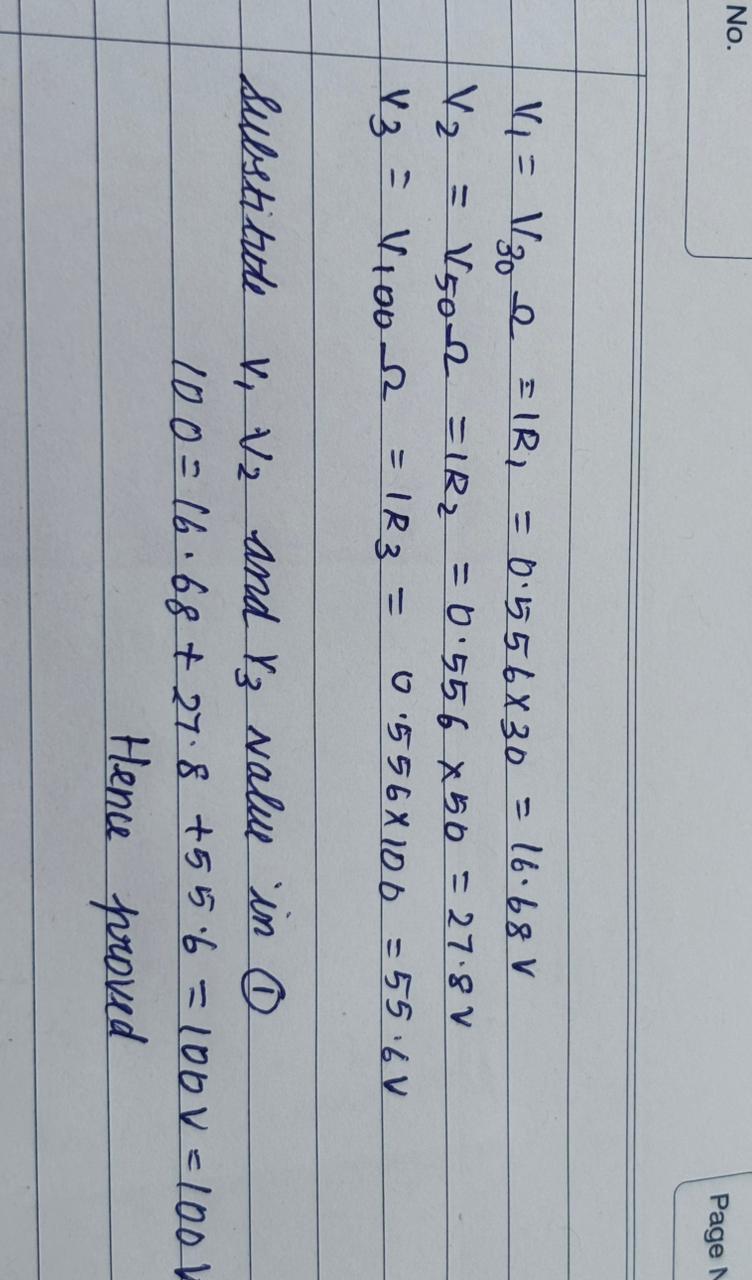 No.
Page N
V₁ = V₃₀Ω = IR₁ = 0.556×30 = 16.68V
V₂ = V₅₀Ω = IR₂ = 0.556×50 = 27.8V
V₃ = V₁₀₀Ω = IR₃ = 0.556×100 = 55.6V
Substitude V₁ V₂ and V₃ value in ①
100 = 16.68 + 27.8 + 55.6 = 100V = 100V
Hence proved